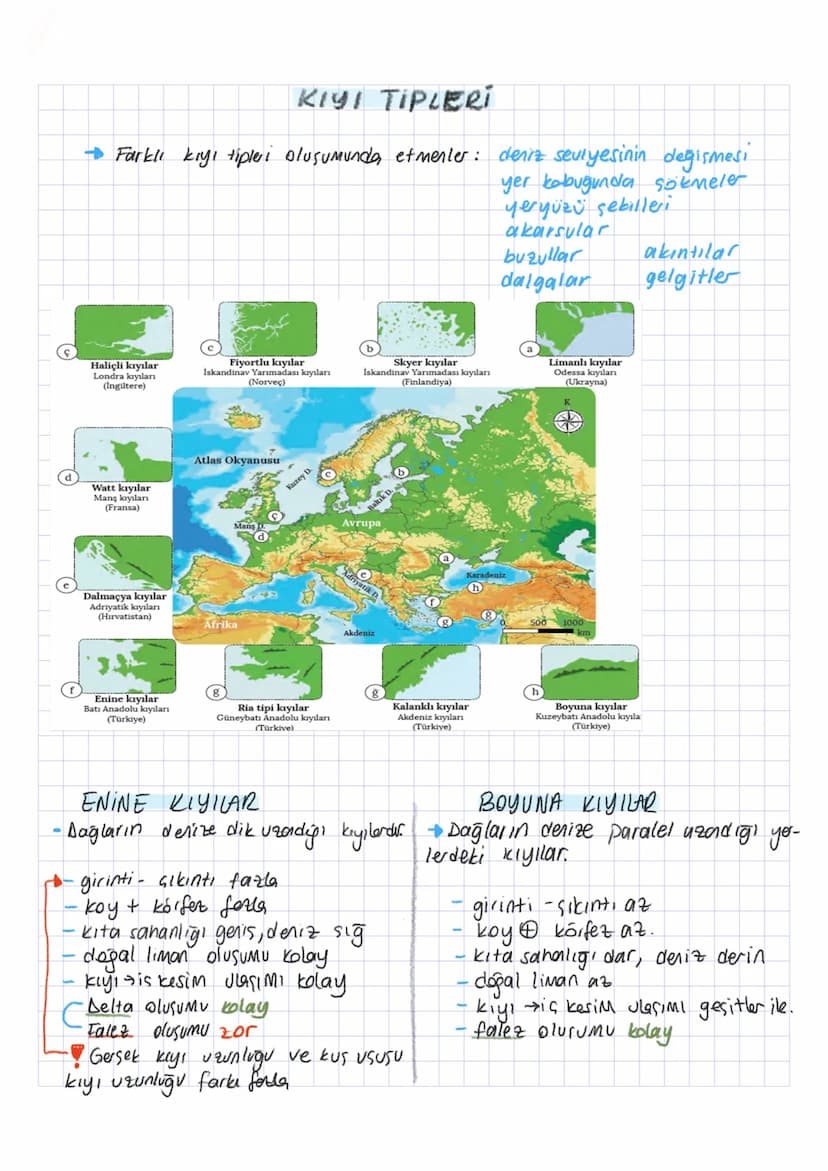 KIYI TİPLERİ
→ Farklı kıyı tipleri oluşumunda etmenler : deniz seviyesinin değişmesi
yer kabuğunda çökmeler
yeryüzü şekilleri
akarsular
buzullar akıntılar
dalgalar gelgitler
ç c b a
Haliçli kıyılar
Londra kıyıları
(İngiltere)
Fiyortlu kıyılar
İskandinav Yarımadası kıyıları
(Norveç)
Skyer kıyılar
İskandinav Yarımadası kıyıları
(Finlandiya)
Limanlı kıyılar
Odessa kıyıları
(Ukrayna)
d
Watt kıyılar
Manş kıyıları
(Fransa)
e
Dalmaçya kıyılar
Adriyatik kıyıları
(Hırvatistan)
K
Atlas Okyanusu
Kuzey D.
c
b
Baltık D.
ç
Manş D.
d
Avrupa
a
Karadeniz
e
Adriyatik D.
h
f
g
ğ
Afrika
Akdeniz
0 500 1000
km
f g ğ h
Enine kıyılar
Batı Anadolu kıyıları
(Türkiye)
Ria tipi kıyılar
Güneybatı Anadolu kıyıları
(Türkiye)
Kalanklı kıyılar
Akdeniz kıyıları
(Türkiye)
Boyuna kıyılar
Kuzeybatı Anadolu kıyıla
(Türkiye)
ENİNE KIYILAR
- Dağların denize dik uzandığı kıyılardır.
- girinti - çıkıntı fazla
- koy + körfez fazla
- kıta sahanlığı geniş, deniz sığ
- doğal liman oluşumu kolay
- kıyı → iç kesim ulaşımı kolay
Delta oluşumu kolay
Falez oluşumu zor
! Gerçek kıyı uzunluğu ve kuş uçuşu
kıyı uzunluğu farkı fazla
BOYUNA KIYILAR
→ Dağların denize paralel uzandığı yer-
lerdeki kıyılar.
- girinti - çıkıntı az
- koy + körfez az.
- kıta sahanlığı dar, deniz derin
- doğal liman az
- kıyı → iç kesim ulaşımı geçitler ile.
- falez oluşumu kolay